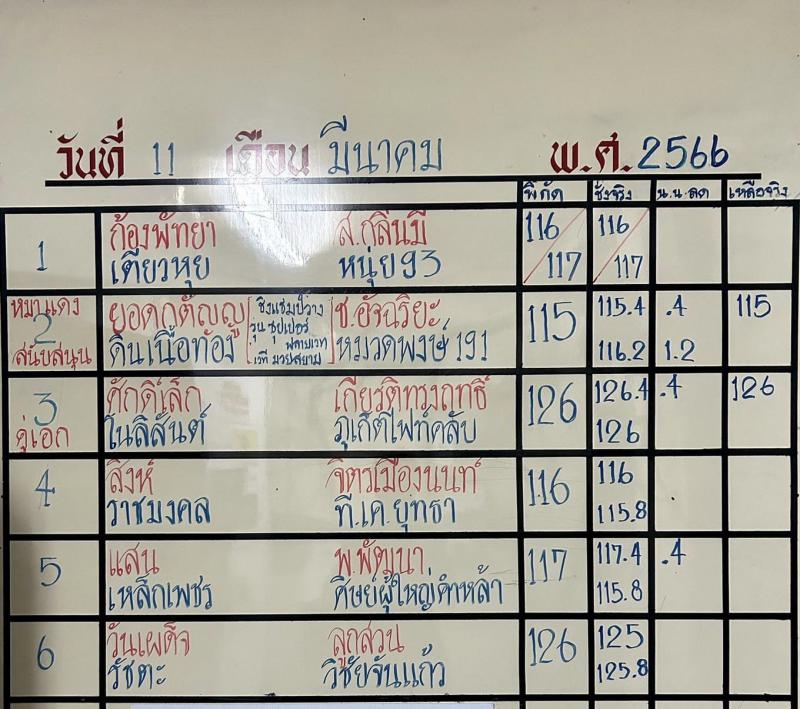 วันที่ 11 เดือน มีนาคม พ.ศ. 2566
พิกัด ชั่งจริง น.น.ลด เหลือจริง
1 ก้องพัทยา ส.กลิ่นมี 116 116
เตียวหุย หนุ่ย 93 117 117
หมาแดง ยอดกตัญญู ชิงแชมป์ว่าง ช.อัจฉริยะ 115.4 .4 115
2 รุ่น ซุปเปอร์ 115
สนับสนุน ดินเนื้อทอง ฟลายเวท หมวดพงษ์ 191 116.2 1.2
เวที มวยสยาม
3 ศักดิ์เล็ก เกียรติทรงฤทธิ์ 126 126.4 .4 126
คู่เอก โนลิสันต์ ภูเก็ตไฟท์คลับ 126
4 สิงห์ จิตรเมืองนนท์ 116 116
ราชมงคล ที.เค.ยุทธา 115.8
5 แสน พ.พัฒนา 117 117.4 .4
เหล็กเพชร ศิษย์ผู้ใหญ่คำหล้า 115.8
6 วันเผด็จ ลูกสวน 126 125
รัชตะ วิชัยจันแก้ว 125.8